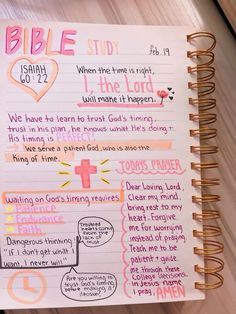 BIBLE STUDY
feb. 19
ISAIAH
60:22
When the time is right,
I, the Lord
will make it happen
We have to learn to trust God's timing,
trust in his plan, he knows what He's doing +
His timing is PERFECT!
→ We serve a patient GOD, who is also the
King of time.
TODAYS PRAYER
Waiting on God's timing requires
* Patience
* Endurance
* Faith
Dangerous thinking:
"If I don't get what I
want, I never will"
Troubled hearts
come from
the lack of
trust
Are you willing to
trust God's timing
before making a
decision?
Dear Loving Lord,
Clear my mind,
bring rest to my
heart. Forgive
me for worrying
instead of praying.
Teach me to be
patient + guide
me through these
College decisions.
In Jesus name
I pray, AMEN